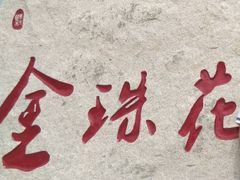 金珠花